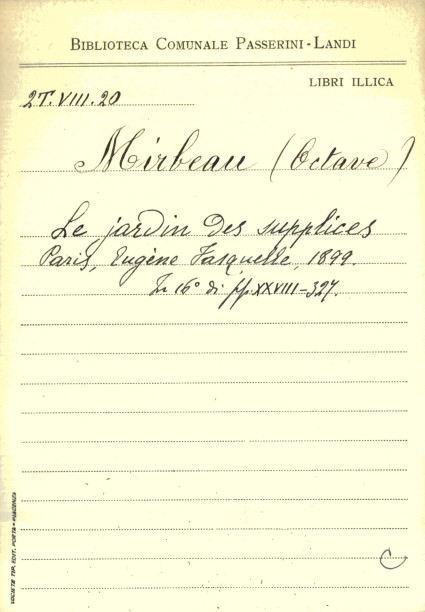 BIBLIOTECA COMUNALE PASSERINI-LANDI
LIBRI ILLICA
2T.VIII.20
Mirbeau (Octave)
Le jardin des supplices
Paris, Eugène Fasquelle, 1899.
In 16° di pp. XXVIII-327.
C
SOCIETÀ TIP. EDIT. PORTA - PIACENZA